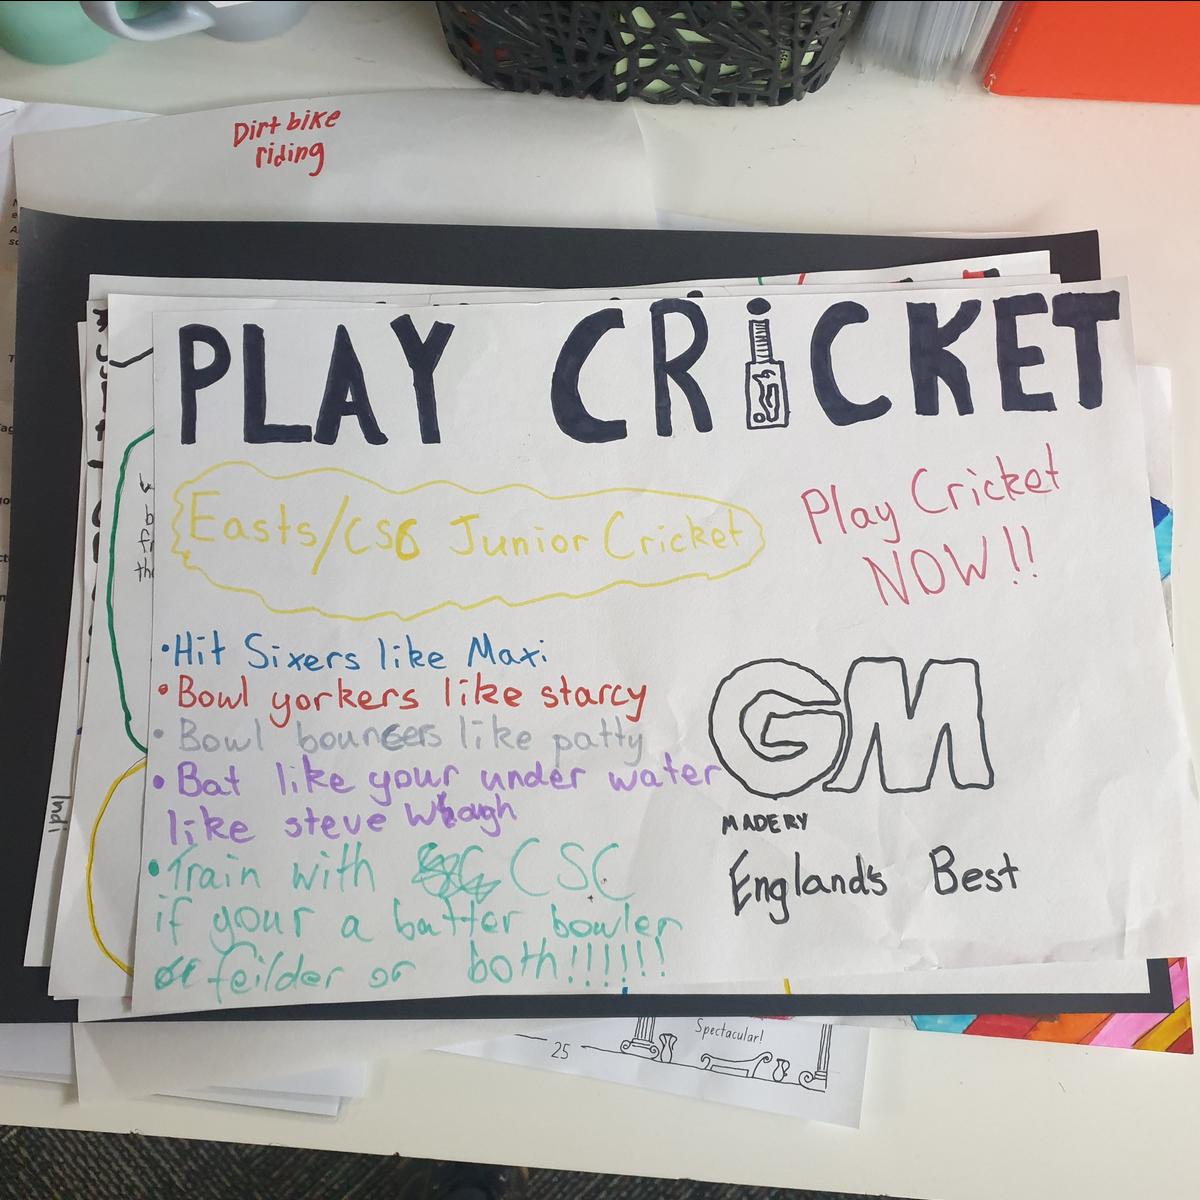 Dirt bike
riding
PLAY CRiCKET
Easts/CSC Junior Cricket
Play Cricket
NOW!!
•Hit Sixers like Maxi
•Bowl yorkers like starcy
•Bowl bouncers like patty
•Bat like your under water
like steve Waugh
•Train with CSC
if your a batter bowler
or feilder or both!!!!!!
GM
MADE BY
England's Best
Indi
25
Spectacular!